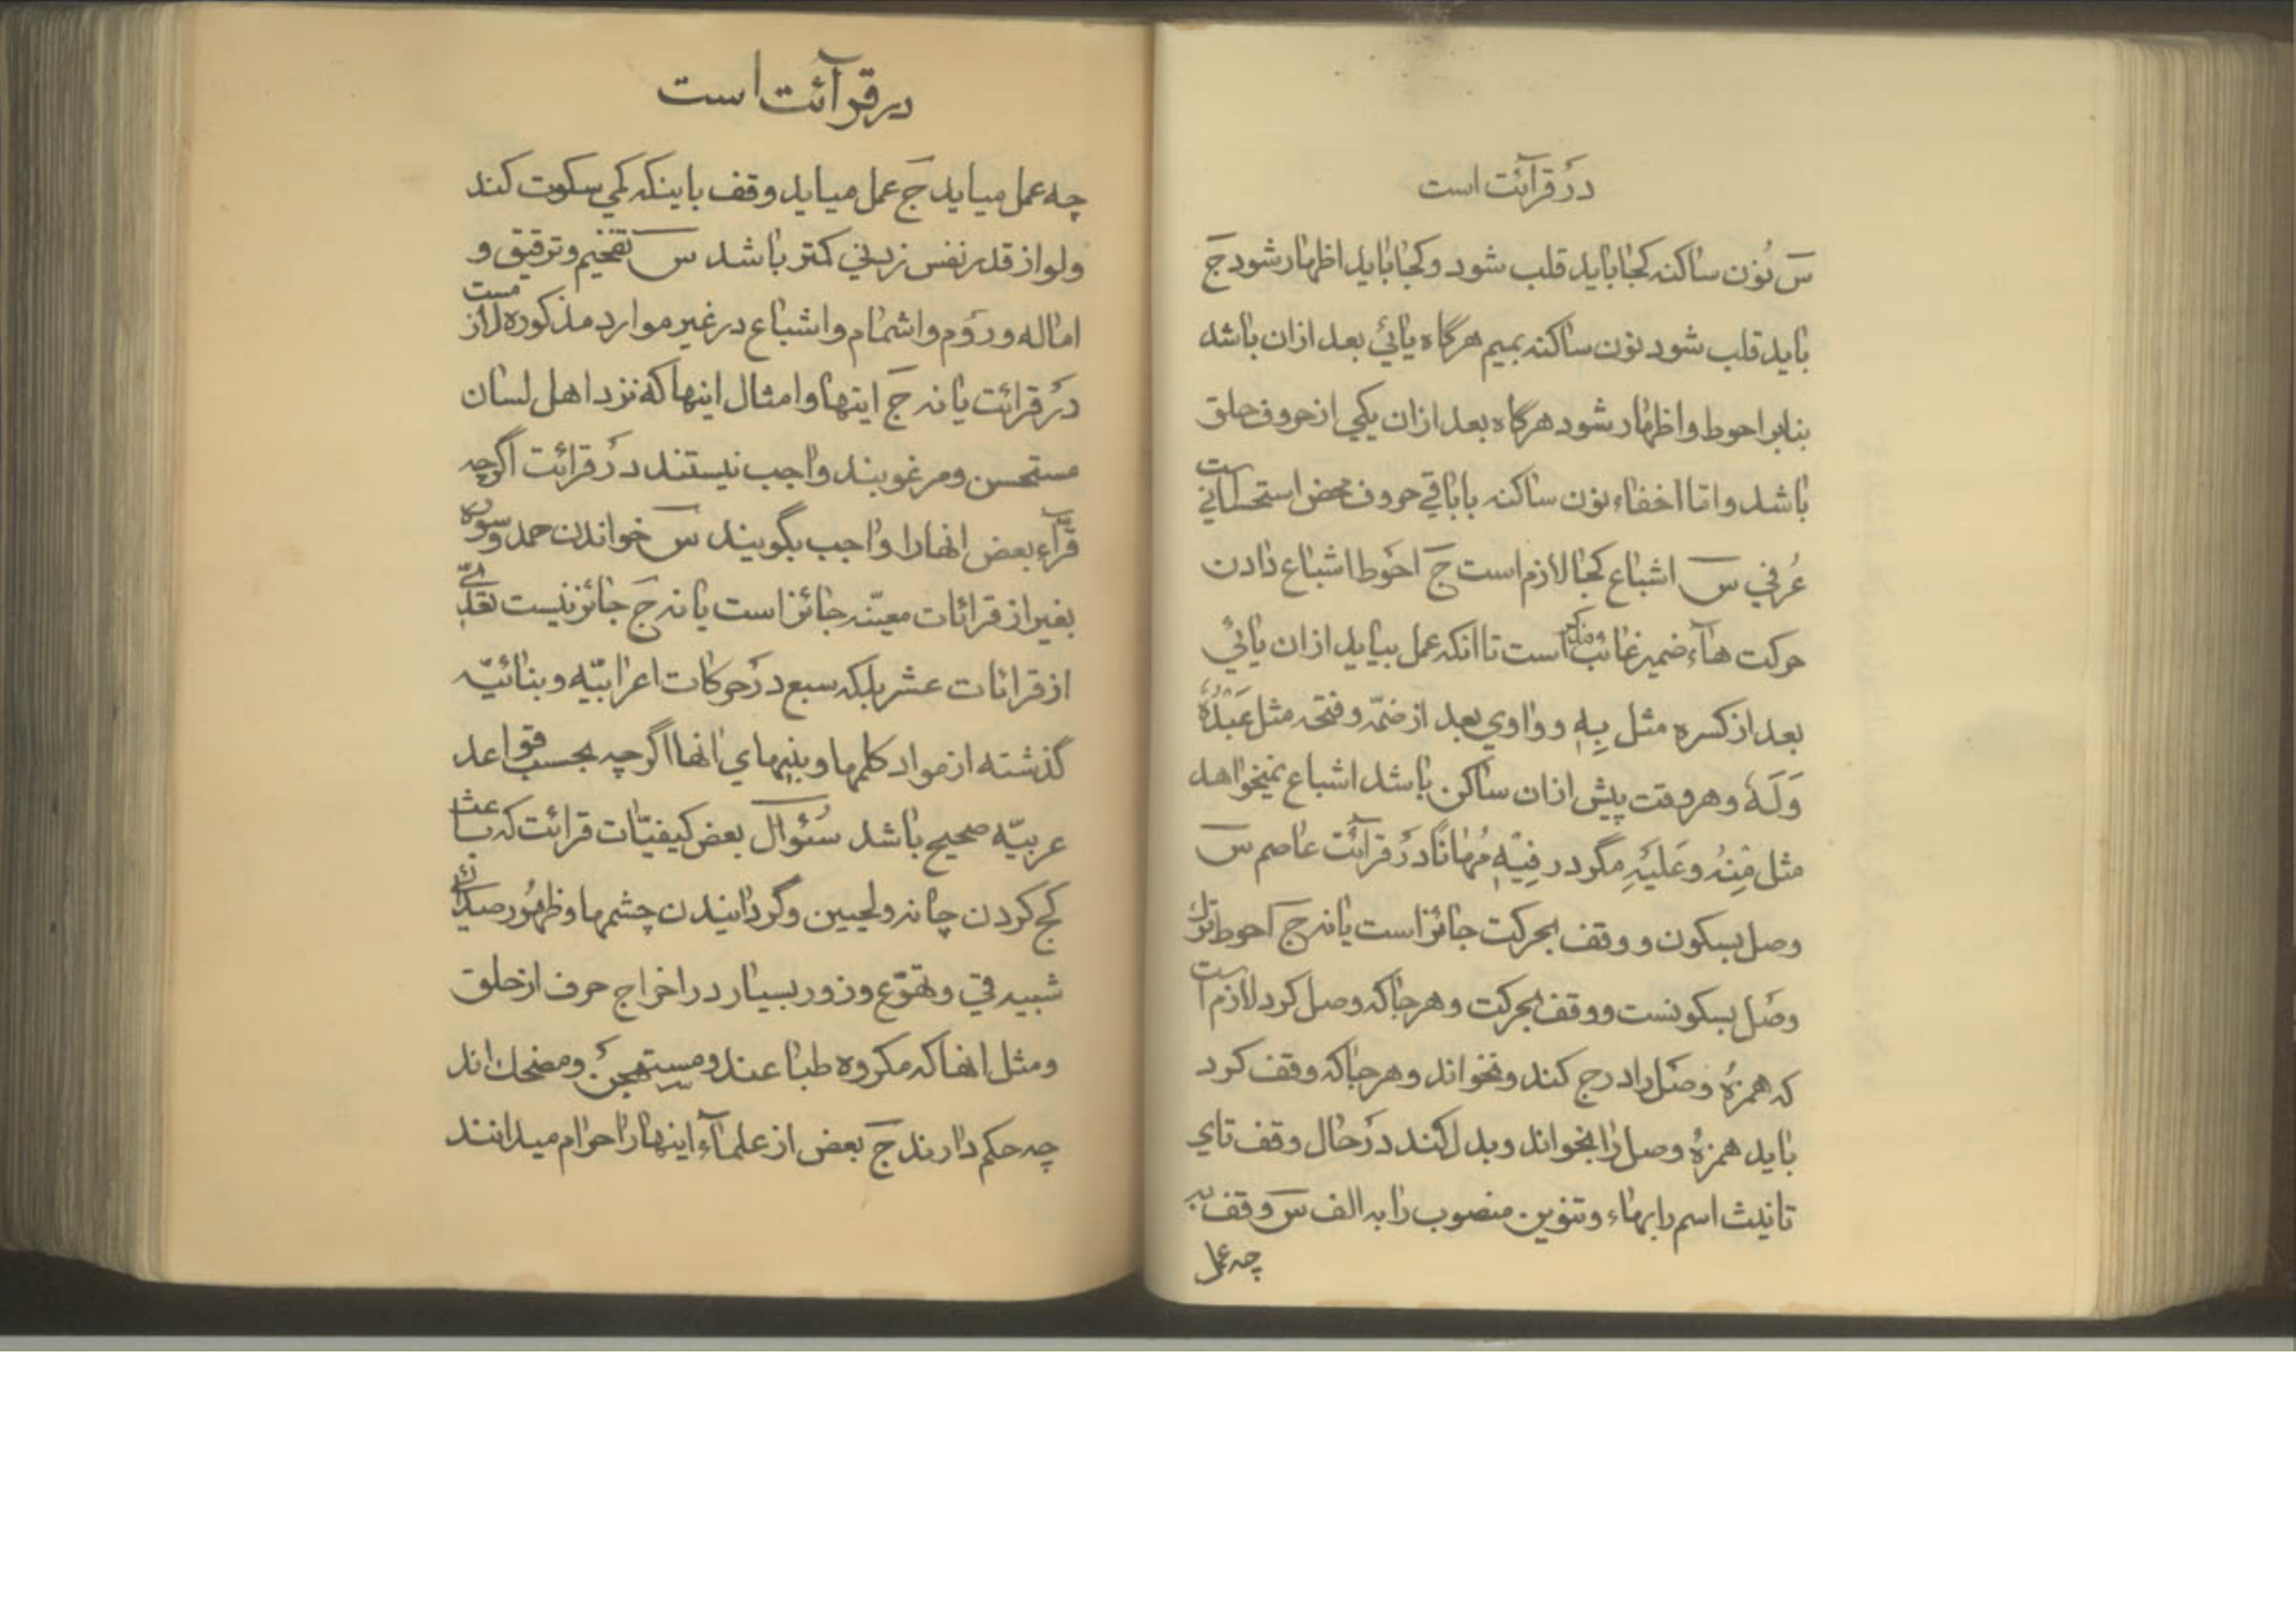 در قرآئت است
س نون ساکنه کجا باید قلب شود و کجا باید اظهار شود ج
باید قلب شود نون ساکنه بمیم هرگاه یائي بعد ازان باشد
بنابر احوط و اظهار شود هرگاه بعد ازان یکي از حروف حلق
باشد و امّا اخفاء نون ساکنه با باقي حروف محض استحساني است
عُرفي س اشباع کجا لازم است ج احوط اشباع دادن
حرکت هآء ضمیر غائب مذکر است تا انکه عمل بیاید ازان یائي
بعد از کسره مثل بِهِ و واوي بعد از ضمّه و فتحه مثل عَبْدُهُ
وَلَهُ و هر وقت پیش ازان ساکن باشد اشباع نمیخواهد
مثل مِنْهُ و عَلَیْهِ مگر در فِیْهِ مُهٰانًا در قرآئت عاصم س
وصل بسکون و وقف بحرکت جائز است یا نه ج احوط ترك
وصل بسکونست و وقف بحرکت و هر جا که وصل کرد لازم است
که همزهٔ وصل را درج کند و نخواند و هر جا که وقف کرد
باید همزهٔ وصل را بخواند و بدل کند در حال وقف تاي
تانیث اسم را بهاء و تنوین منصوب را به الف س وقف به
چه عمل
در قرآئت است
چه عمل میاید ج عمل میاید وقف باینکه کمي سکوت کند
ولو از قدر نفس زدني کمتر باشد س تفخیم و ترقیق و
اماله و رَوْم و اشمام و اشباع در غیر موارد مذکوره لازمست
در قرائت یا نه ج اینها و امثال اینها که نزد اهل لسان
مستحسن و مرغوبند واجب نیستند در قرائت اگرچه
قرّآء بعض انها را واجب بگویند س خواندن حمد و سوره
بغیر از قرائات معیّنه جائز است یا نه ج جائز نیست تعدّي
از قرائات عشر بلکه سبع در حرکات اعرابیّه و بنائیّه
گذشته از مواد کلمها و بنیهاي انها اگرچه بحسب قواعد
عربیّه صحیح باشد سُئوال بعض کیفیّات قرائت که باعث
کج کردن چانه و لحیین و گردانیدن چشمها و ظهور صدائي
شبیه قي و تهوّع و زور بسیار در اخراج حرف از حلق
و مثل انها که مکروه طباعند و مستهجن و مضحك اند
چه حکم دارند ج بعض از علمآء اینها را حرام میدانند